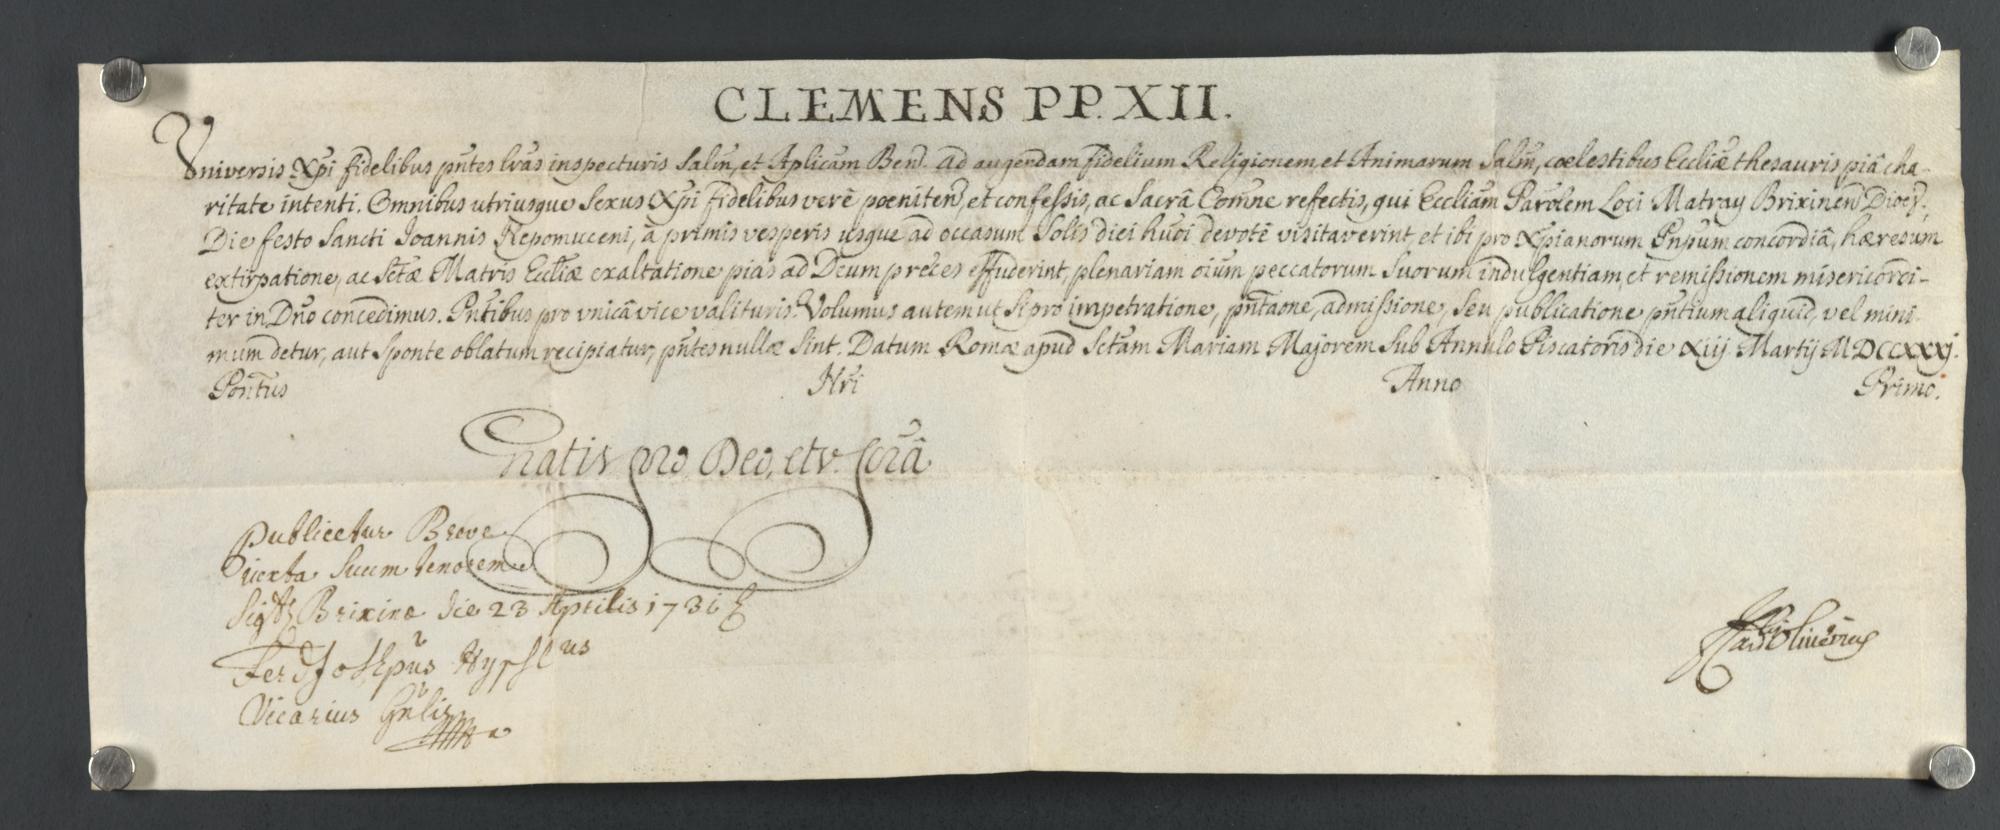 CLEMENS PP. XII.
Universis Xp̄i fidelibus pn̄tes lr̄as inspecturis Salm̄, et Aplicam̄ Ben̄. Ad augendam fidelium Religionem, et Animarum Salm̄, coelestibus Eccliæ thesauris piâ cha-
ritate intenti. Omnibus utriusque Sexus Xp̄i fidelibus verè poeniten̄, et confessis, ac Sacrâ Com̄ne refectis, qui Eccliam̄ Parolem̄ Loci Matray Brixinen̄ Dioec̄.,
Die festo Sancti Joannis Nepomuceni, à primis vesperis usque ad occasum Solis diei hūoi devotè visitaverint, et ibi pro Xp̄ianorum Pn̄pum concordiâ, hæresum
extirpatione, ac Sctǣ Matris Eccliǣ exaltatione pias ad Deum preces effuderint, plenariam oīum peccatorum suorum indulgentiam, et remissionem misericordi-
ter in Dn̄o concedimus. Pn̄tibus pro unicâ vice valituris. Volumus autem ut si pro impetratione, pn̄taōne, admissione, seu publicatione pn̄tium aliquid, vel mini-
mum detur, aut sponte oblatum recipiatur, pn̄tes nullæ sint. Datum Romæ apud Sctam̄ Mariam Majorem sub Annulo Piscatoris die xiij Martij MDCCXXXj.
Pontūs Nrī Anno Primo.
Gratis pro Deo, et Scrā̂
Publicetur Breve
iuxta suum tenorem
Sigt̄ Brixinæ die 23 Aprilis 1731
Ferd Josephūs
Vicarius Gn̄lis
F. Card Oliverius